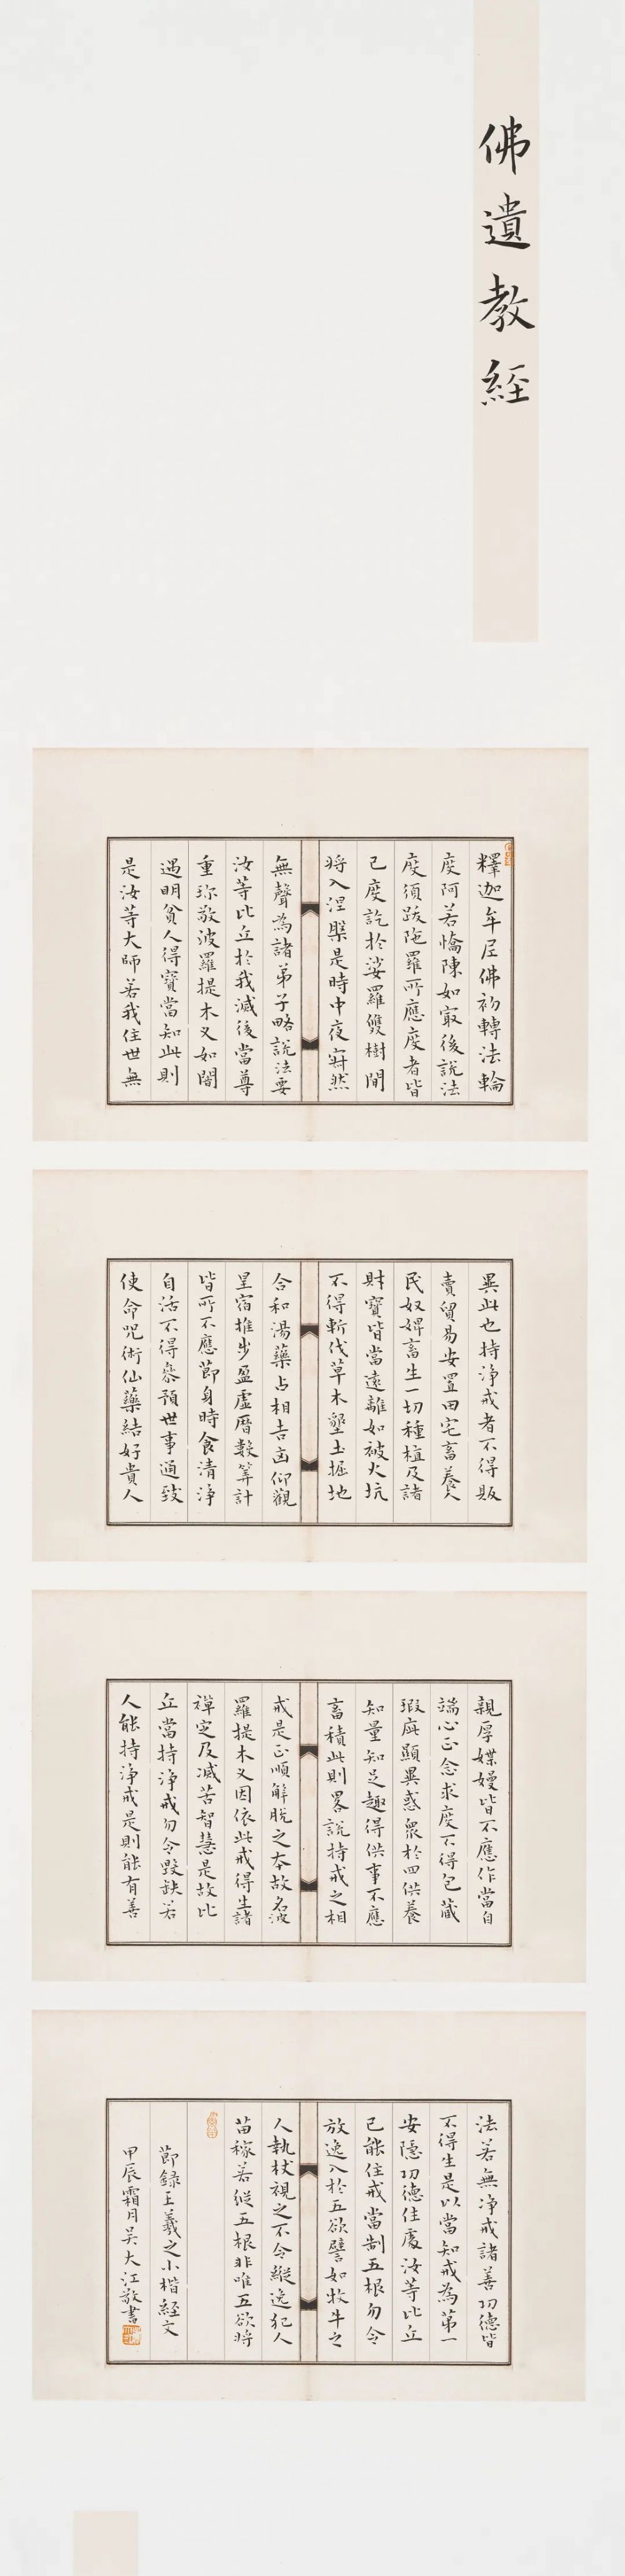 佛遺教經
釋迦牟尼佛初轉法輪
度阿若憍陳如寂後說法
度須跋陁羅所應度者皆
已度訖於娑羅雙樹間
將入涅槃是時中夜寂然
無聲為諸弟子略說法要
汝等比丘於我滅後當尊
重珎敬波羅提木叉如闇
遇明貧人得寶當知此則
是汝等大師若我住世無
異此也持淨戒者不得販
賣貿易安置田宅畜養人
民奴婢畜生一切種植及諸
財寶皆當遠離如被火坑
不得斬伐草木墾土掘地
合和湯藥占相吉凶仰觀
星宿推步盈虛曆數筭計
皆所不應節身時食清淨
自活不得叅預世事通致
使命咒術仙藥結好貴人
親厚媟嫚皆不應作當自
端心正念求度不得包藏
瑕疵顯異惑眾於四供養
知量知足趣得供事不應
畜積此則畧說持戒之相
戒是正順解脫之本故名波
羅提木叉因依此戒得生諸
禪定及滅苦智慧是故比
丘當持淨戒勿令毀缺若
人能持淨戒是則能有善
法若無淨戒諸善功德皆
不得生是以當知戒為第一
安隱功德住處汝等比丘
已能住戒當制五根勿令
放逸入於五欲譬如牧牛之
人執杖視之不令縱逸犯人
苗稼若縱五根非唯五欲將
節錄王羲之小楷經文
甲辰霜月吳大江敬書